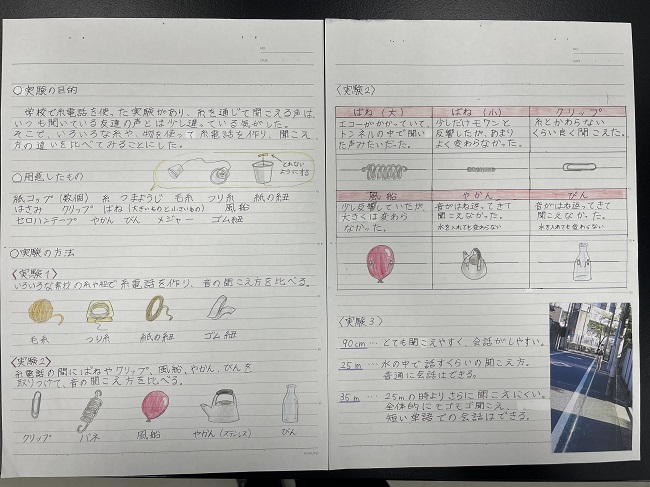 ○実験の目的
学校で糸電話を使った実験があり、糸を通じて聞こえる声は、
いつも聞いている友達の声とは少し違っている気がした。
そこで、いろいろな糸や、物を使って糸電話を作り、聞こえ
方の違いを比べてみることにした。
とれない
ようにする
○用意したもの
紙コップ(数個) 糸 つまようじ 毛糸 つり糸 紙の紐
はさみ クリップ ばね(大きいものと小さいもの) 風船
セロハンテープ やかん びん メジャー ゴム紐
○実験の方法
〈実験1〉
いろいろな素材の糸や紐で糸電話を作り、音の聞こえ方を比べる。
毛糸 つり糸 紙の紐 ゴム紐
〈実験2〉
糸電話の間にばねやクリップ、風船、やかん、びんを
取りつけて、音の聞こえ方を比べる。
クリップ バネ 風船 やかん(ステンレス) びん
〈実験2〉
ばね(大) ばね(小) クリップ
エコーがかかっていて、
トンネルの中で聞い
た声みたいだった。
少しだけモワンと
反響したが、あまり
よく変わらなかった。
糸とかわらない
くらい良く聞こえた。
風船 やかん びん
少し反響していたが、
大きくは変わら
なかった。
音がはね返ってきて
聞こえなかった。
水を入れても変わらない
音がはね返ってきて
聞こえなかった。
水を入れても変わらない
〈実験3〉
90cm…とても聞こえやすく、会話がしやすい。
25m…水の中で話すくらいの聞こえ方。
普通に会話はできる。
35m…25mの時よりさらに聞こえにくい。
全体的にモゴモゴ聞こえ、
短い単語での会話はできる。